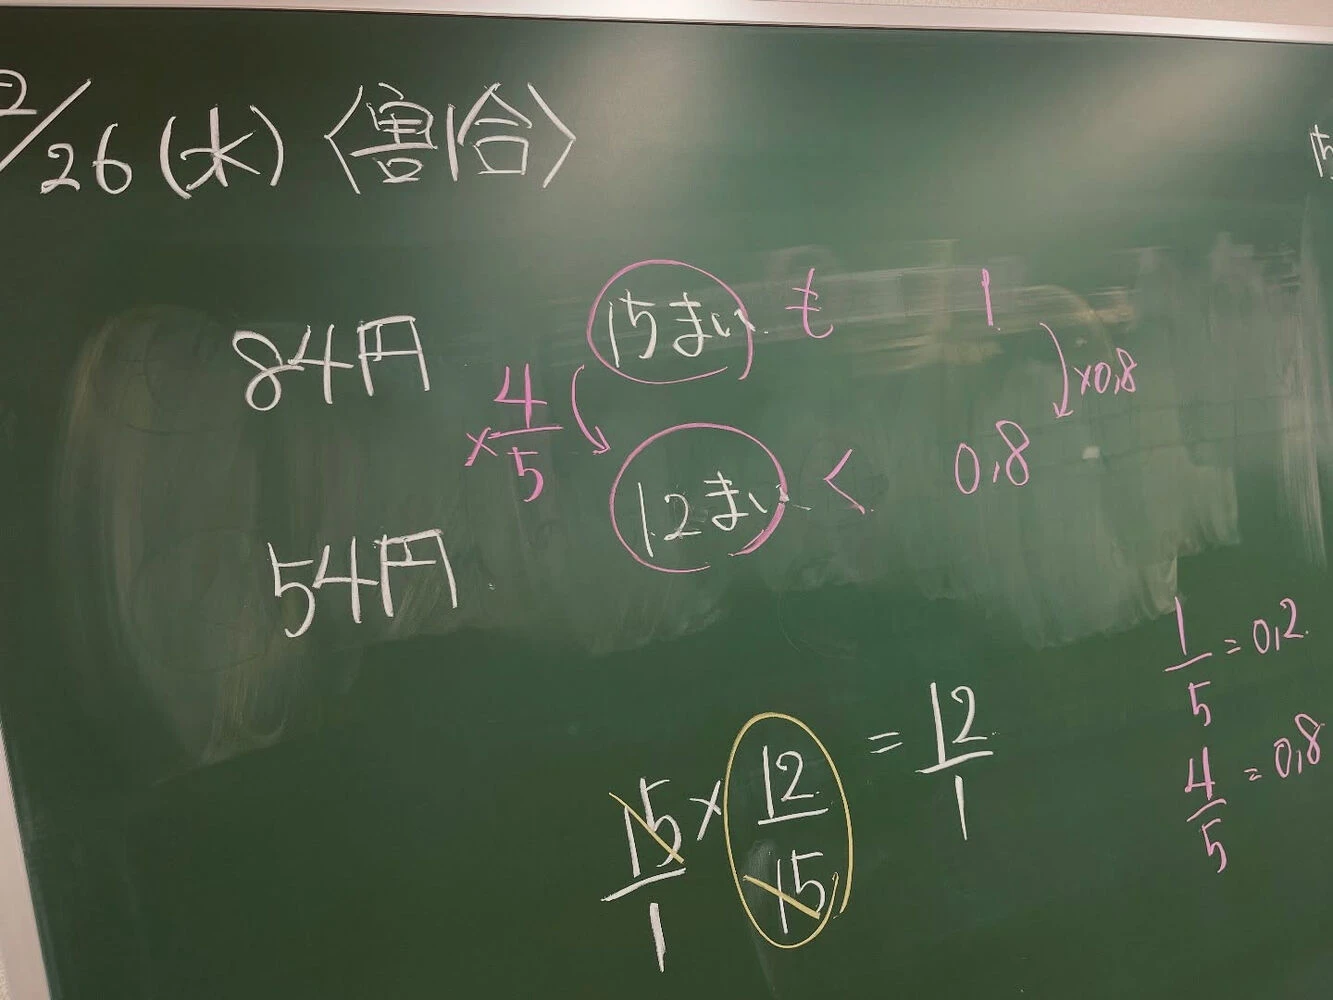 2/26(水)〈割合〉
84円 15まい も 1
×4/5 ×0,8
12まい く 0,8
54円
1/5=0,2
15/1×12/15=12/1
4/5=0,8